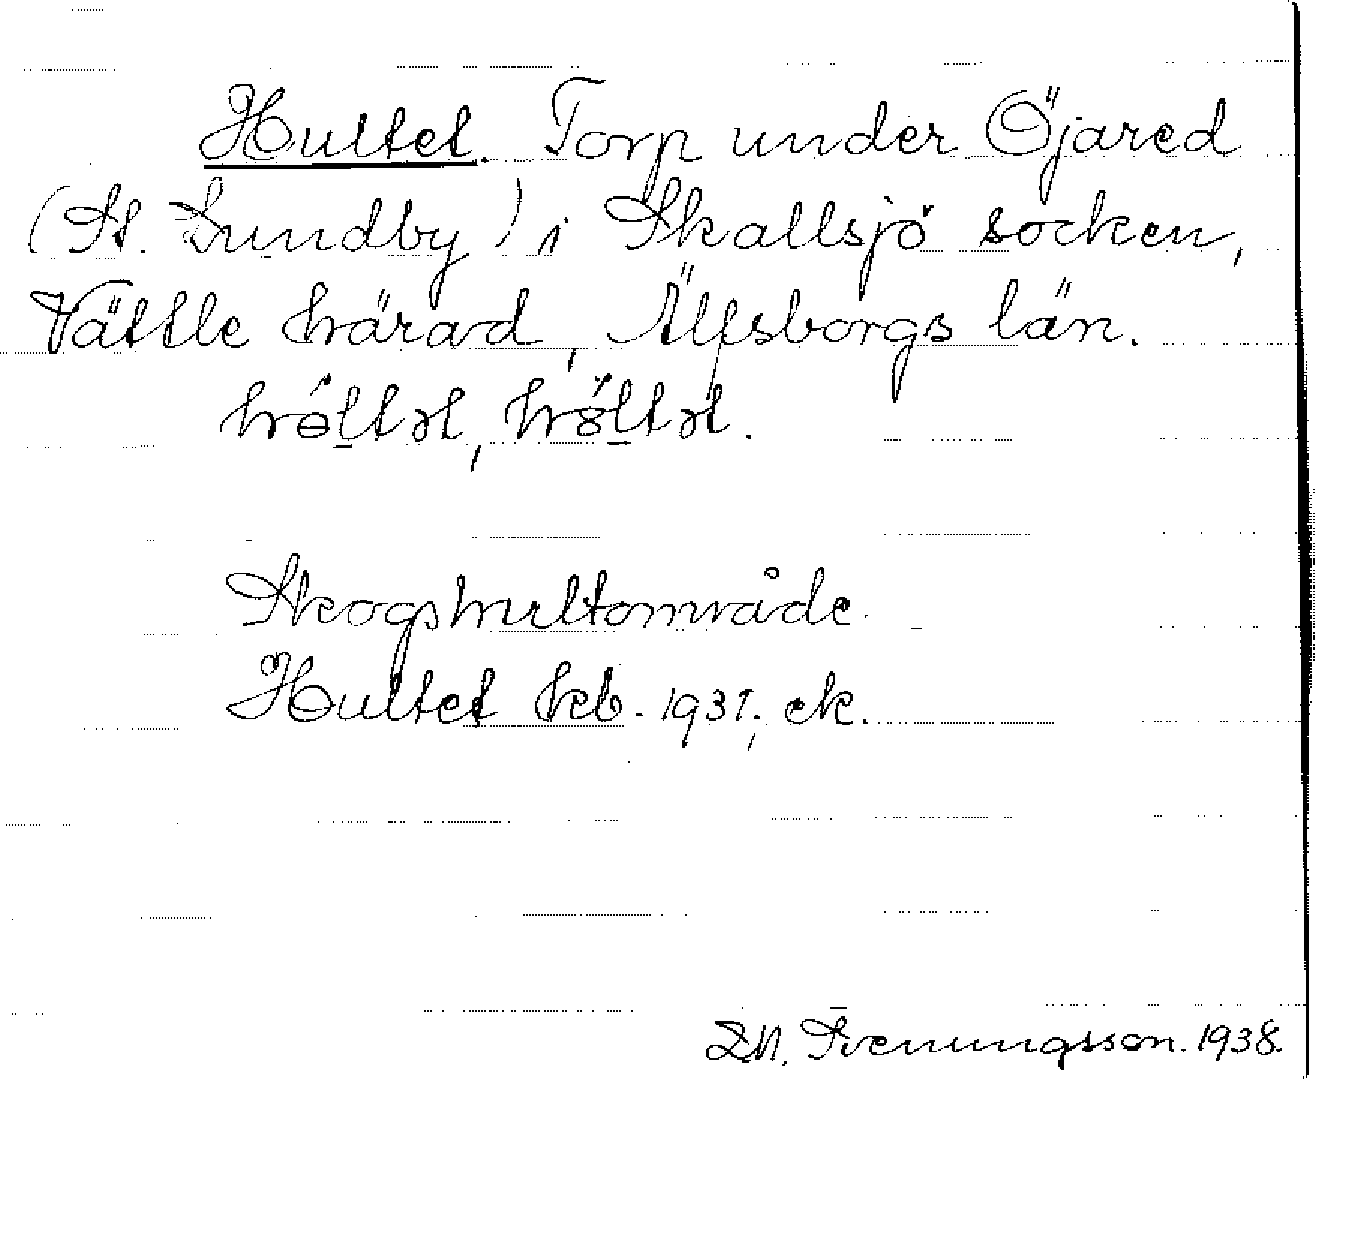 Hultet. Torp under Öjared
(St. Lundby) i Skallsjö socken,
Vättle härad, Älfsborgs län.
Skogshultområde.
Hultet keb. 1931, ek.
Svenungsson. 1938.